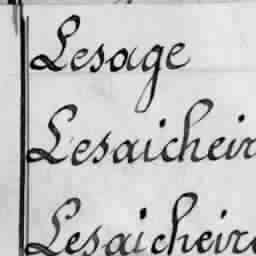 Lesage
Lesaicheir
Lesaicheire